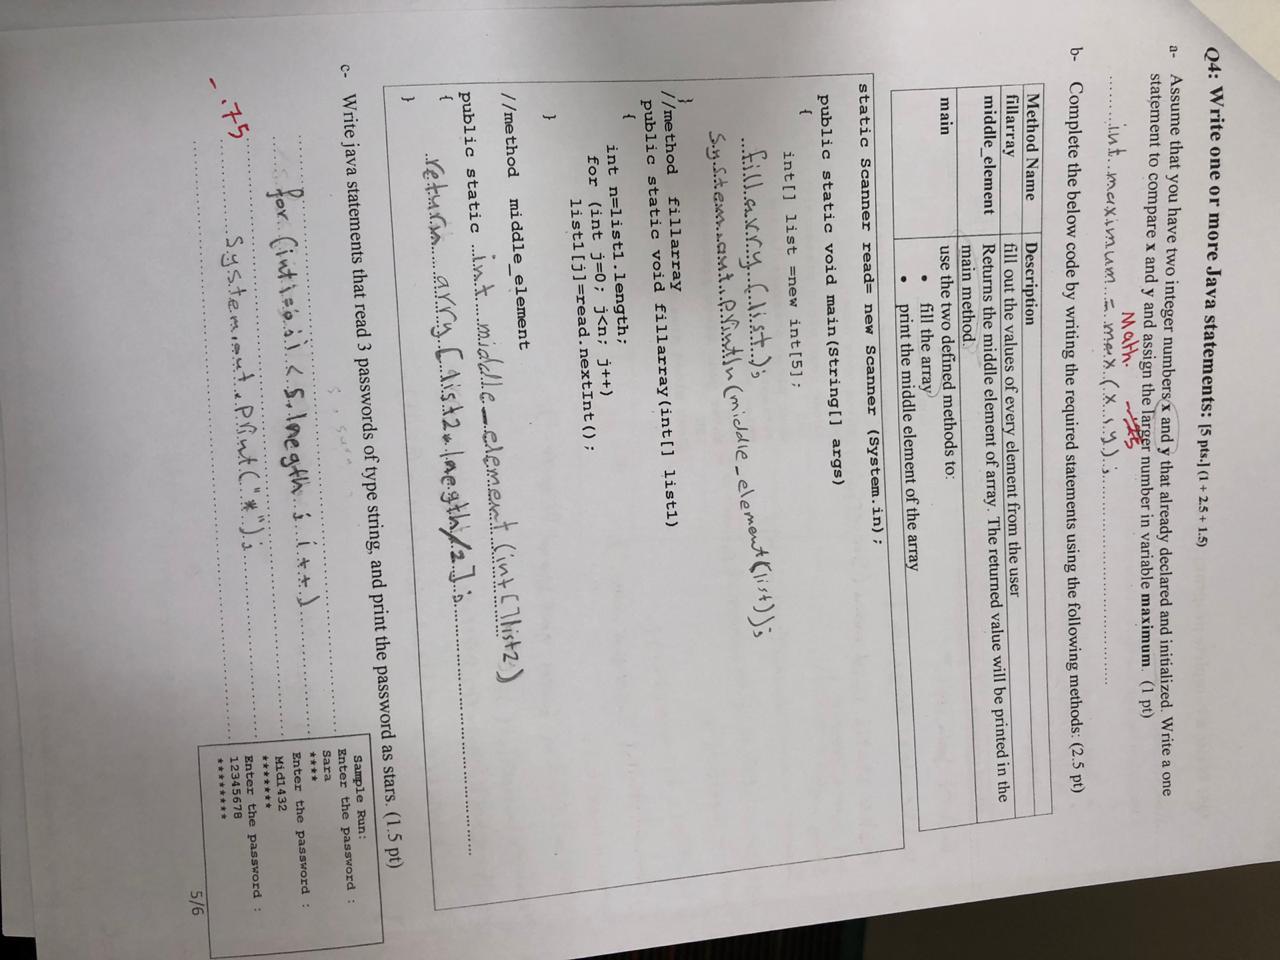 Q4: Write one or more Java statements: [5 pts.] (1 + 2.5 + 1.5)
a- Assume that you have two integer numbers x and y that already declared and initialized. Write a one
statement to compare x and y and assign the larger number in variable maximum. (1 pt)
Math.
int maximum = max (x , y) ;
b- Complete the below code by writing the required statements using the following methods: (2.5 pt)
Method Name Description
fillarray fill out the values of every element from the user
middle_element Returns the middle element of array. The returned value will be printed in the
main method.
main use the two defined methods to:
• fill the array
• print the middle element of the array
static Scanner read= new Scanner (System.in);
public static void main(String[] args)
{
int[] list =new int[5];
fill.arry (list);
System.out.println(middle_element(list));
}
//method fillarray
public static void fillarray(int[] list1)
{
int n=list1.length;
for (int j=0; j<n; j++)
list1[j]=read.nextInt();
}
//method middle_element
public static int middle_element (int[]list2)
{
return arry[list2.lnegth/2];
}
c- Write java statements that read 3 passwords of type string, and print the password as stars. (1.5 pt)
for (int i=0; i < s.lnegth ; i++)
System.out.print("*");
-.75
Sample Run:
Enter the password :
Sara
****
Enter the password :
Mid1432
*******
Enter the password :
12345678
********
5/6